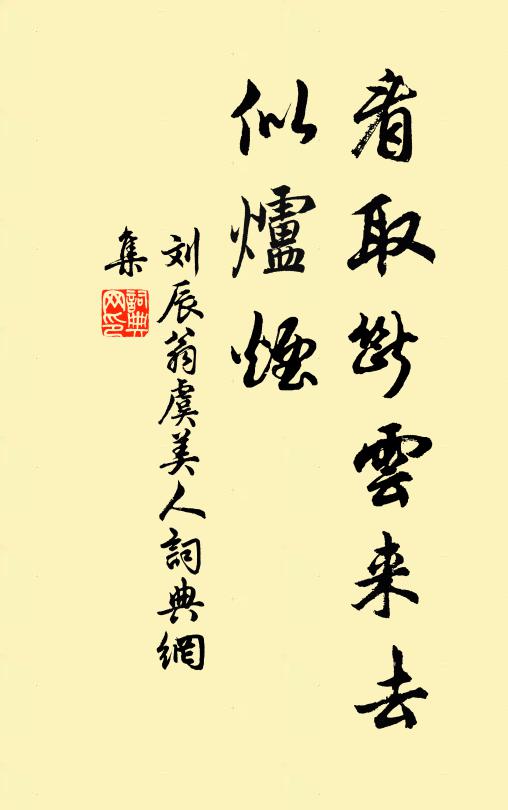 看取断雲来去
似爐煙
刘辰翁虞美人詞典網
集
詞典
网印